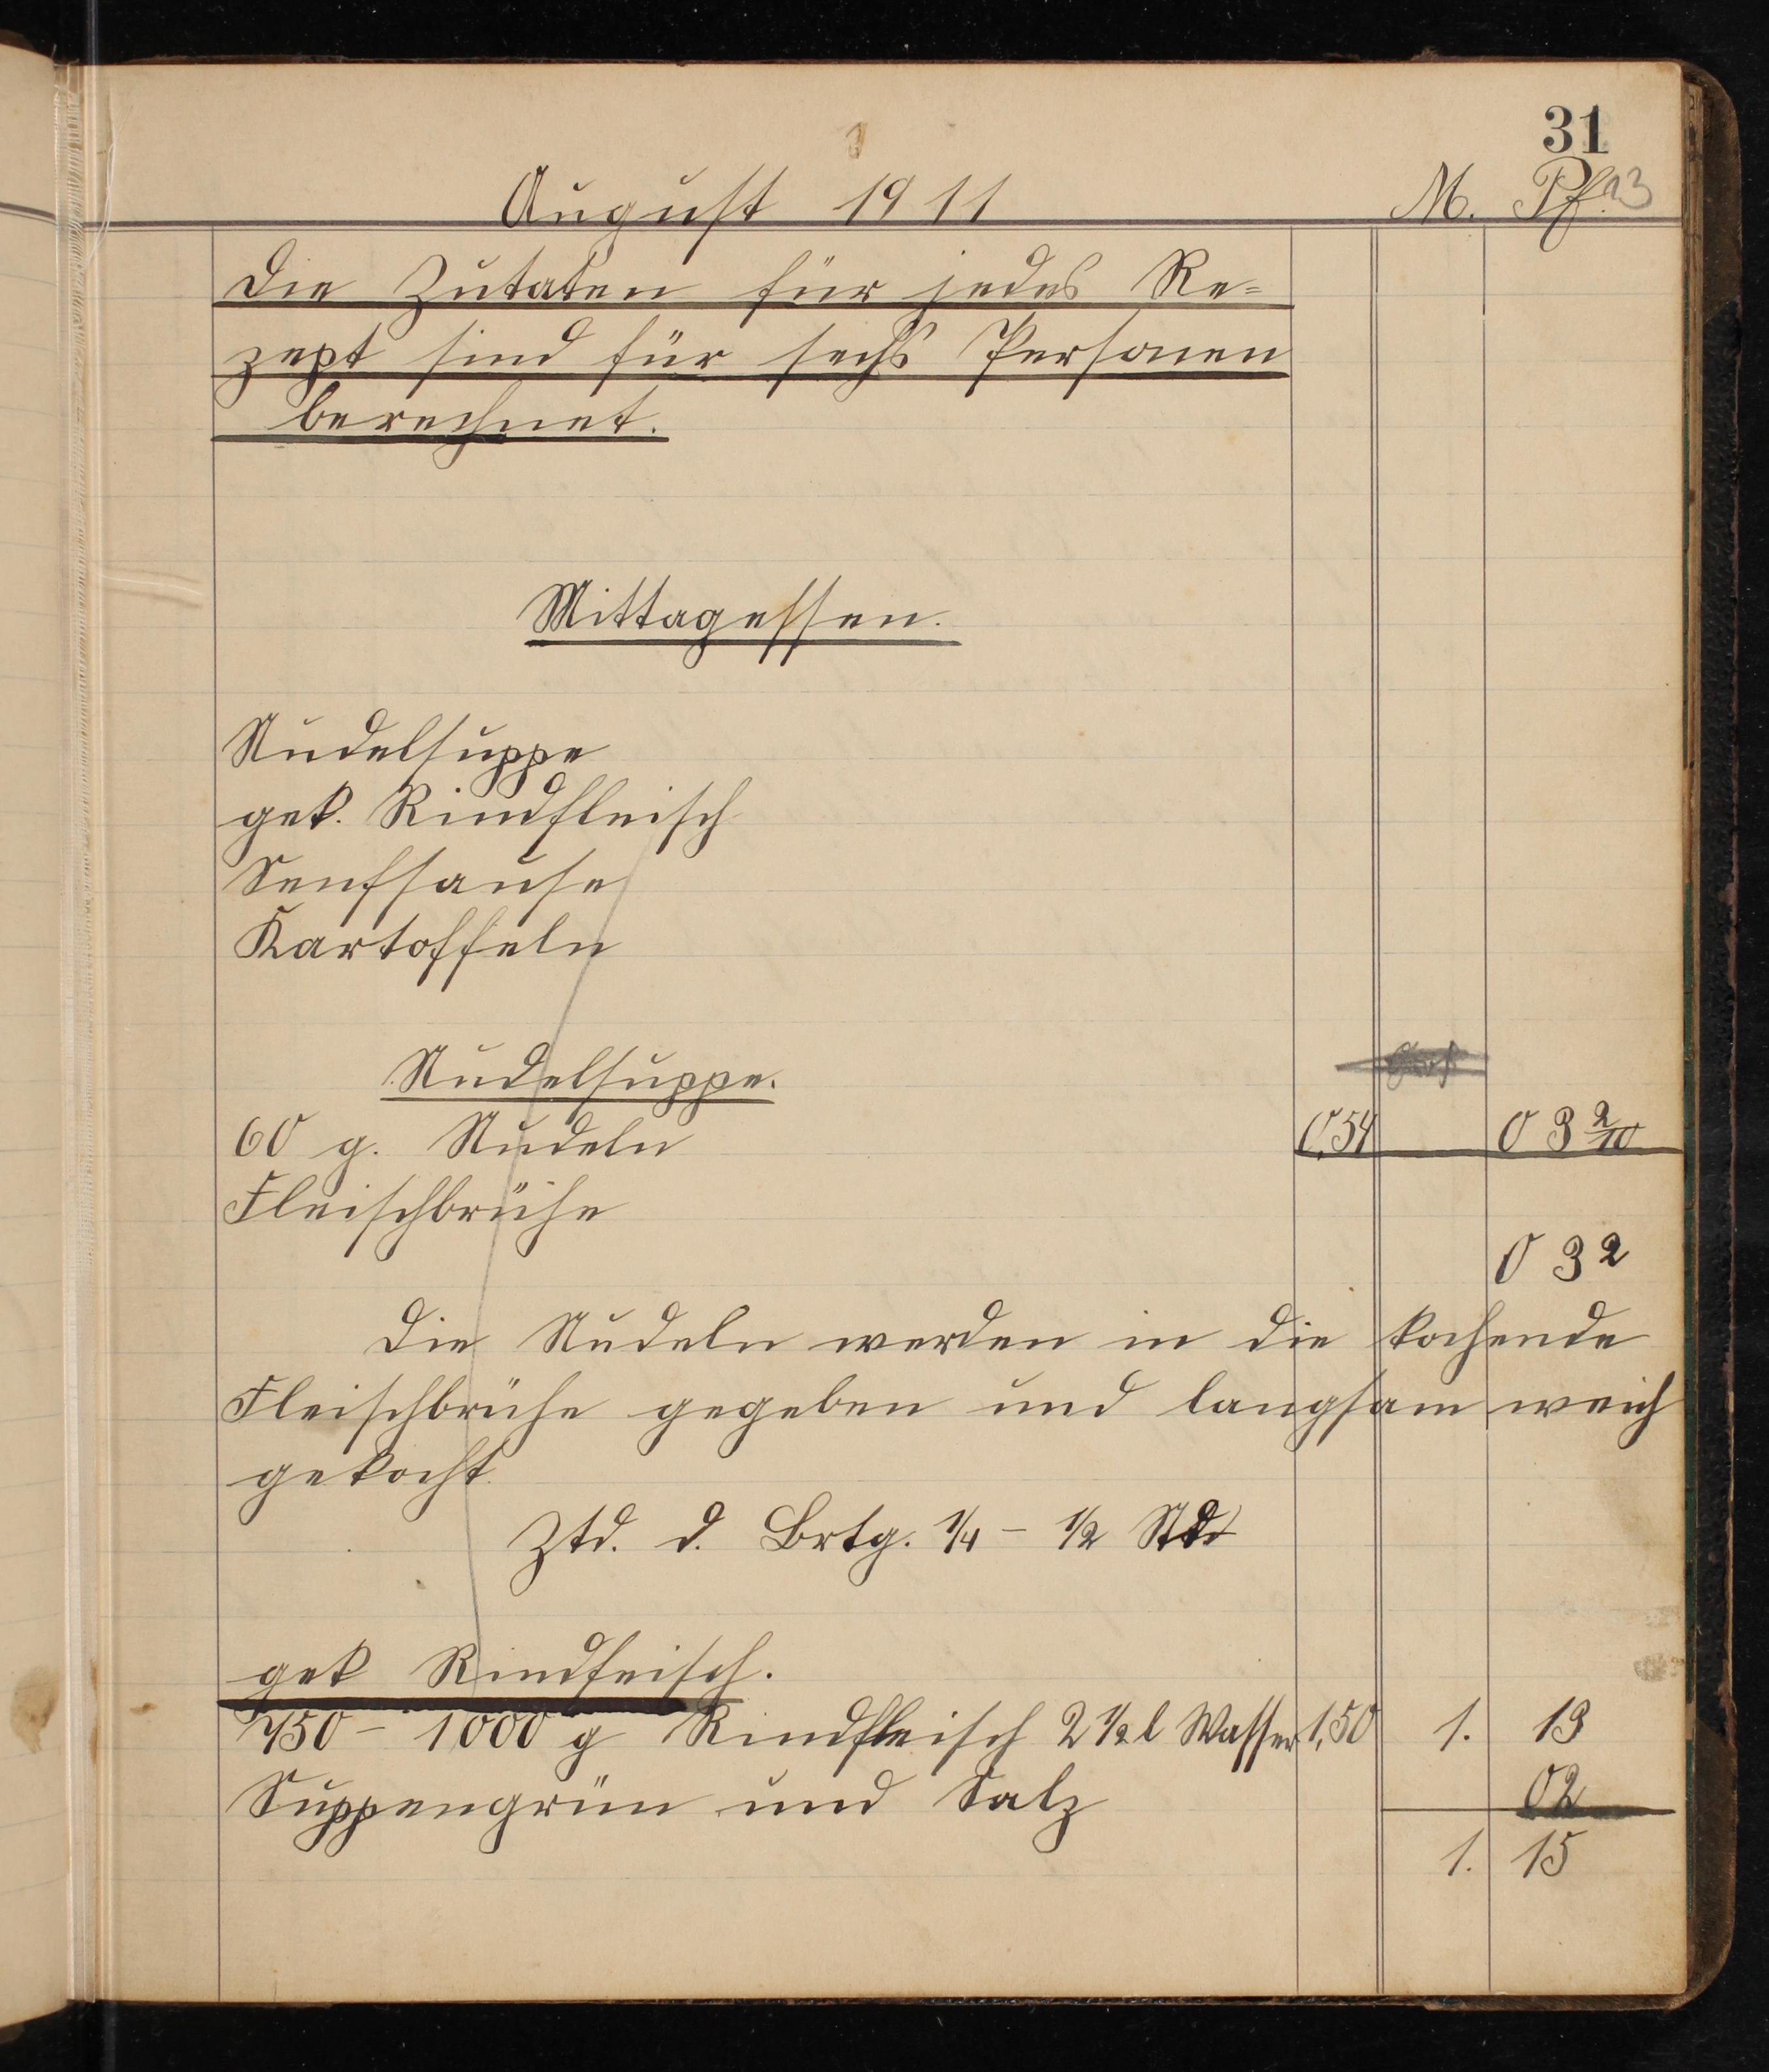 31
August 1911 M. Pf. 13
Die Zutaten für jedes Re=
zept sind für sechs Personen
berechnet.
Mittagessen.
Nudelsuppe
gek. Rindfleisch
Senfsause
Kartoffeln
Nudelsuppe.
60 g. Nudeln 0,54 0 3 2/10
Fleischbrühe
0 3 2
Die Nudeln werden in die kochende
Fleischbrühe gegeben und langsam weich
gekocht.
Ztd. d. Brtg. 1/4 - 1/2 Std
gek Rindfeisch.
750 - 1000 g Rindfleisch 2 1/2 l Wasser 1,50 1. 13
Suppengrün und Salz 02
1. 15